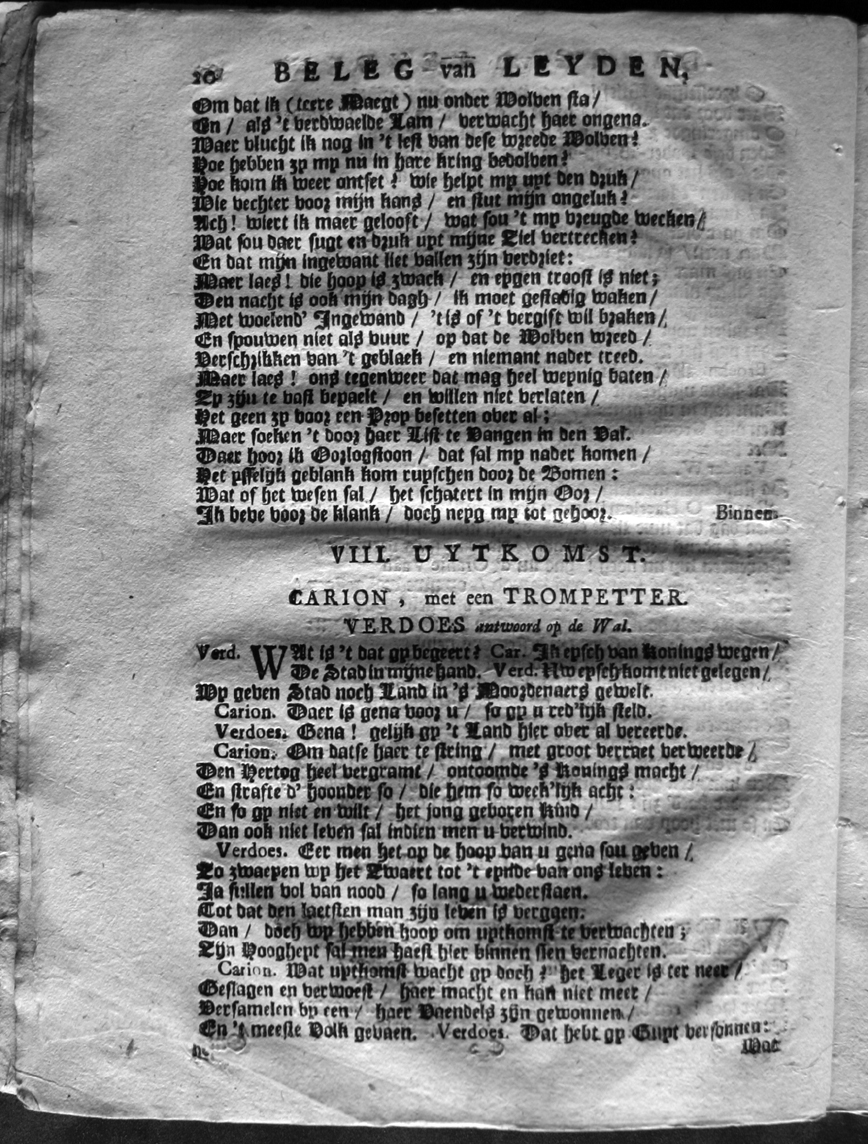 20 BELEG van LEYDEN,
Om dat ik (teere Maegt) nu onder Wolven sta/
En/ als 't verdwaelde Lam/ verwacht haer ongena.
Waer vlucht ik nog in 't lest van dese wreede Wolven?
Hoe hebben zy my nu in hare kring bedolven?
Hoe kom ik weer ontset? wie helpt my uyt den druk/
Wie vechter voor mijn kans/ en stut mijn ongeluk?
Ach! wiert ik maer gelooft/ wat sou 't my vreugde wecken/
Wat sou daer sugt en druk uyt mijne Ziel vertrecken?
En dat mijn ingewant liet vallen zijn verdriet:
Maer laes! die hoop is zwack/ en eygen troost is niet;
Den nacht is ook mijn dagh/ ik moet gestadig waken/
Met woelend' Ingewand/ 't is of 't vergift wil braken/
En spouwen niet als vuur/ op dat de Wolven wreed/
Verschrikken van 't geblaek/ en niemant nader treed.
Maer laes! ons tegenweer dat mag heel weynig baten/
Zy zijn te vast bepaelt/ en willen niet verlaten/
Het geen zy voor een Prop besetten over al;
Maer soeken 't door haer List te Vangen in den Val.
Daer hoor ik Oorlogstoon/ dat sal my nader komen/
Het ysselijk geblank kom ruyschen door de Bomen:
Wat of het wesen sal/ het schatert in mijn Oor/
Ik beve voor de klank/ doch neyg my tot gehoor. Binnen.
VIII. UYTKOMST.
CARION, met een TROMPETTER.
VERDOES antwoord op de Wal.
Verd. WAt is 't dat gy begeert? Car. Ik eysch van Konings wegen/
De Stad in mijne hand. Verd. Uw eysch komt niet gelegen/
Wy geven Stad noch Land in 's Moordenaers gewelt.
Carion. Daer is gena voor u/ so gy u red'lijk steld.
Verdoes. Gena! gelijk gy 't Land hier over al vereerde.
Carion. Om datse haer te string/ met groot verraet verweerde/
Den Hertog heel vergramt/ ontoomde 's Konings macht/
En strafte d' hoonder so/ die hem so week'lijk acht:
En so gy niet en wilt/ het jong geboren Kind/
Dan ook niet leven sal indien men u verwind.
Verdoes. Eer men het op de hoop van u gena sou geven/
Zo zwaeyen wy het Zwaert tot 't eynde van ons leven:
Ja sullen vol van nood/ so lang u wederstaen.
Tot dat den laetsten man zijn leven is vergaen.
Dan/ doch wy hebben hoop om uytkomst te verwachten;
Zijn Hoogheyt sal men haest hier binnen sien vernachten.
Carion. Wat uytkomst wacht gy doch? het Leger is ter neer/
Geslagen en verwoest/ haer macht en kan niet meer/
Versamelen by een/ haer Vaendels zijn gewonnen/
En 't meeste Volk gevaen. Verdoes. Dat hebt gy Guyt versonnen:
Wat